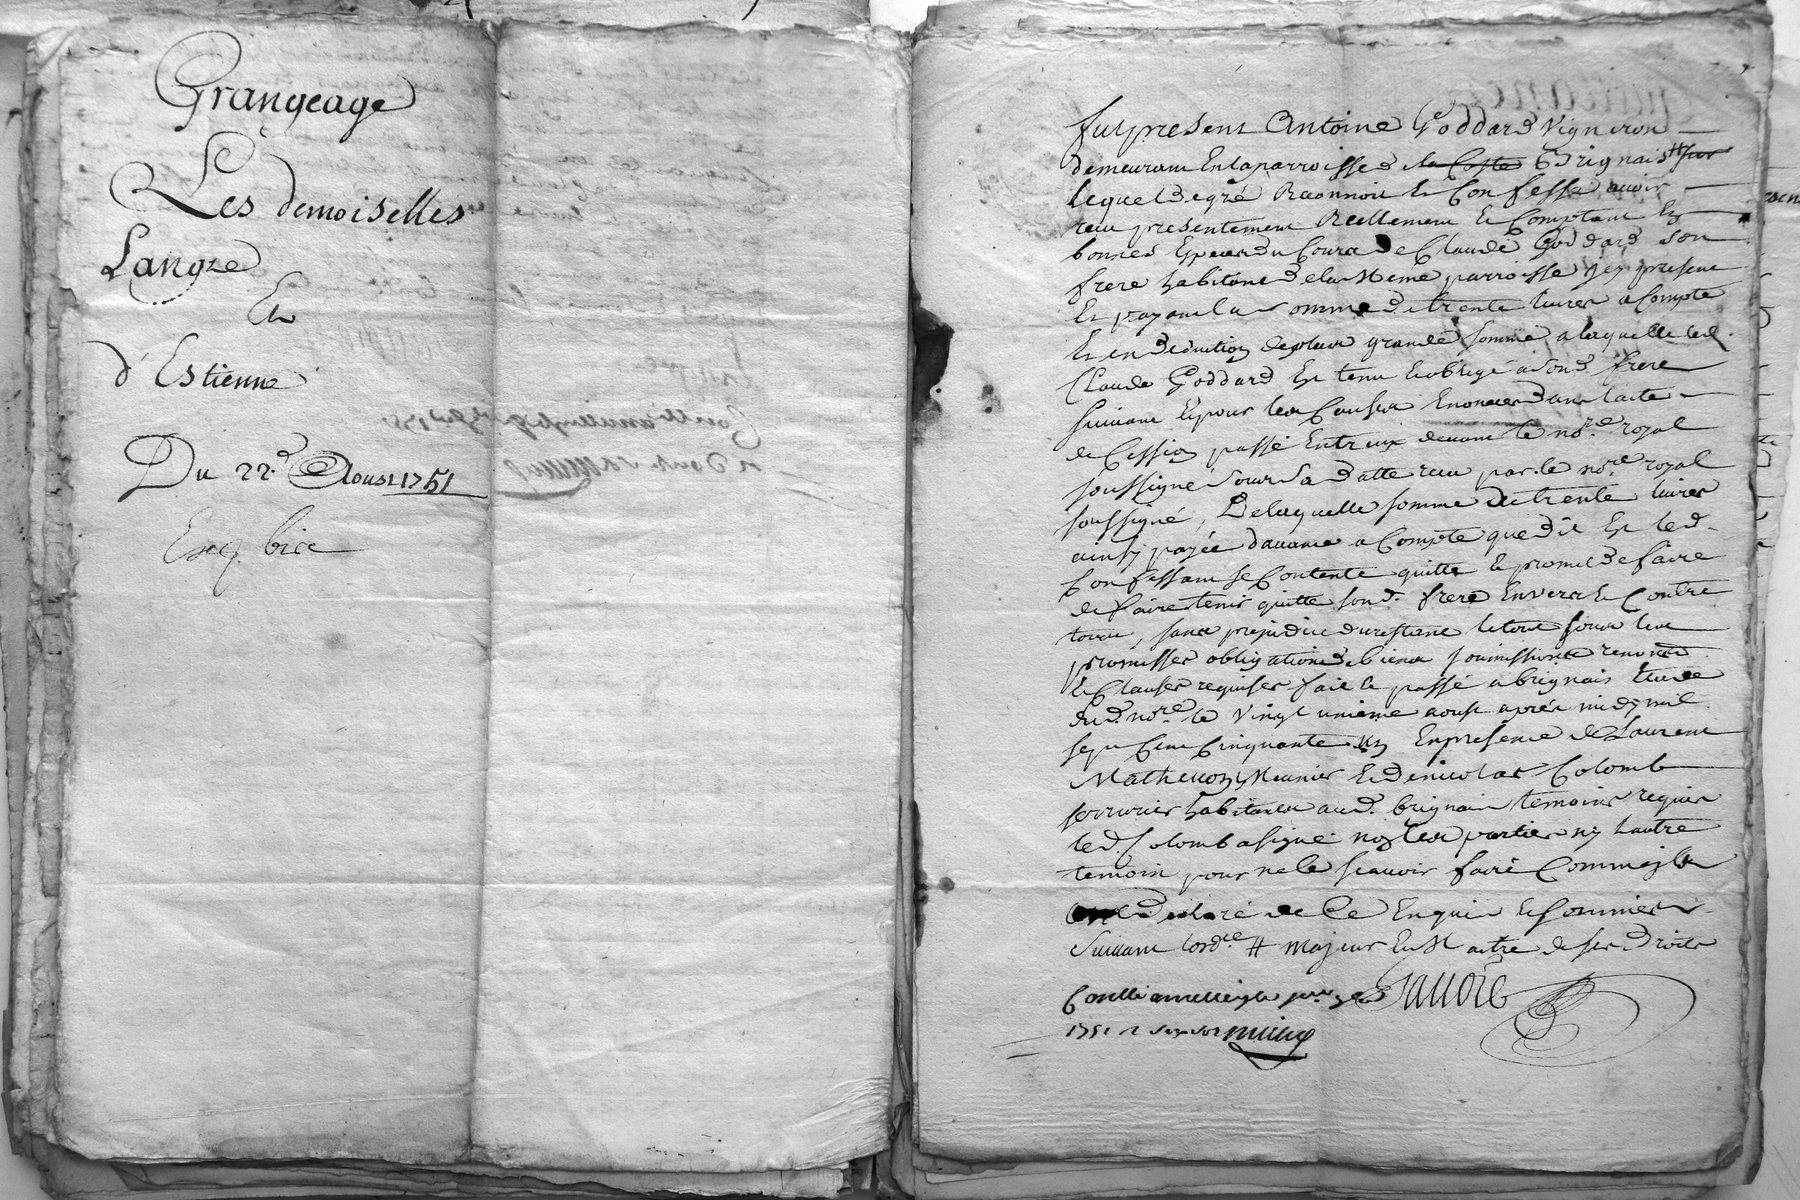 Grangeage
Les demoiselles
Langre
Et
d'Estienne
Du 22.e Aoust 1751
fut present Antoine Goddard Vigneron
demeurant en la parroisse de la Coste Brignais # sur
lequel de gré Reconnoit et Confesse avoir
receu presentement Reellement et Comptant En
bonnes Especes du Cours de Claude Goddard son
frere habitant de la Meme parroisse Icy present
Et payant la somme de trente livres a Compte
Et en deduction de plus grande somme a laquelle led.
Claude Goddard Est tenu et obligé a sond. frere
suivant Et pour les Causes Enoncees dans l'acte
de Cession passé Entreux devant le no.re royal
soussigné sous sa datte receu par le no.re royal
soussigné, De laquelle somme de trente livres
ainsy payée d'avance a Compte que dit Est led.
Confessant se Contente quitte et promet de faire
de faire tenir quitte sond. frere Envers et Contre
tous, sans prejudice du restant le tout sous les
promesses obligations de biens soumissions renonc.
et Clauses requises fait et passé a brignais Etude
dud. no.re le vingt unieme aoust apres midy mil
sept Cent Cinquante un En presence de Laurent
Mathevon Meunier et de nicolas Colomb
serrurier habitants aud. brignais temoins requis
led. Colomb a signé non les parties ny l'autre
temoin pour ne le scavoir faire Comme ils
ont declaré de Ce Enquis et sommés
suivant l'ord.ce # majeur Et Maitre de ses Droits
1751